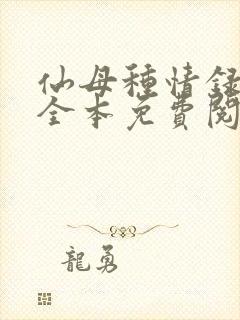 仙母種情錄
全本免費閱
龍勇